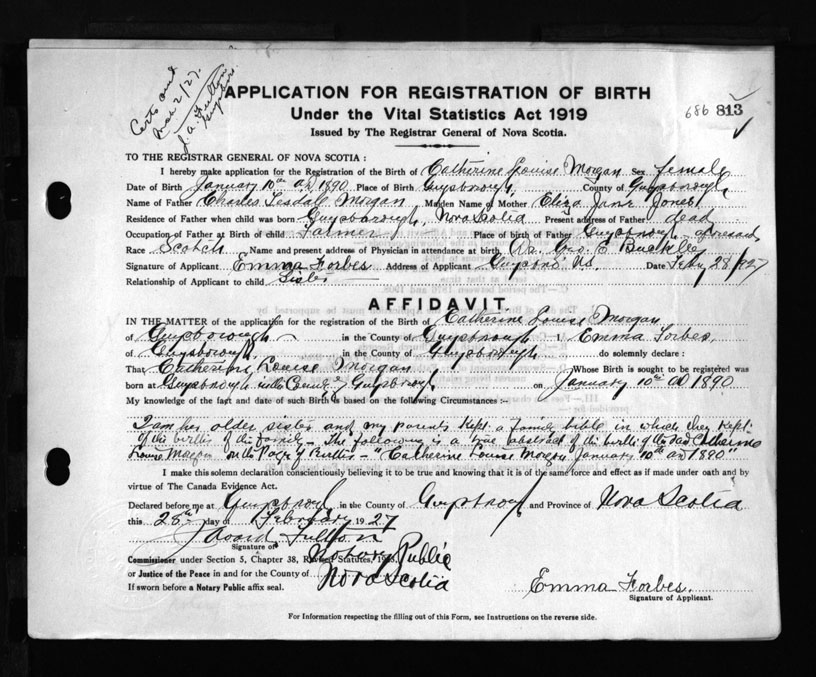 Certs and
Mar 2/27.
J.A. Fulton
Guysboro
APPLICATION FOR REGISTRATION OF BIRTH
686 813
Under the Vital Statistics Act 1919
Issued by The Registrar General of Nova Scotia.
TO THE REGISTRAR GENERAL OF NOVA SCOTIA :
I hereby make application for the Registration of the Birth of Catherine Louise Morgan Sex female
Date of Birth January 10th AD 1890 Place of Birth Guysborough, County of Guysborough
Name of Father Charles Morgan Maiden Name of Mother Eliza Jane Jones
Residence of Father when child was born Guysborough, Nova Scotia Present address of Father dead
Occupation of Father at Birth of child Farmer Place of Birth of Father Guysboro aforesaid
Race Scotch Name and present address of Physician in attendance at Birth Dr. Geo. E. Buckley
Signature of Applicant Emma Forbes Address of Applicant Guysboro NS. Date Feby 28/1927
Relationship of Applicant to child Sister
AFFIDAVIT.
IN THE MATTER of the application for the registration of the Birth of Catherine Louise Morgan
of Guysborough in the County of Guysborough I, Emma Forbes
of Guysborough, in the County of Guysborough do solemnly declare :
That Catherine Louise Morgan Whose Birth is sought to be registered was
born at Guysborough in the County of Guysboro on January 10th AD 1890
My knowledge of the fact and date of such Birth is based on the following Circumstances :-
I am her older sister and my parents kept a family bible in which they kept
of the births of the family - The following is a true abstract of the birth of the said Catherine
Louise Morgan on the Page of Births - "Catherine Louise Morgan January 10th AD 1890"
I make this solemn declaration conscientiously believing it to be true and knowing that it is of the same force and effect as if made under oath and by
virtue of The Canada Evidence Act.
Declared before me at Guysboro in the County of Guysboro and Province of Nova Scotia
this 28th day of February 1927
Fulton
Signature of
Notary Public
Commissioner under Section 5, Chapter 38, Revised Statutes, 19
or Justice of the Peace in and for the County of Nova Scotia
If sworn before a Notary Public affix seal.
Emma Forbes.
Signature of Applicant.
For Information respecting the filling out of this Form, see Instructions on the reverse side.